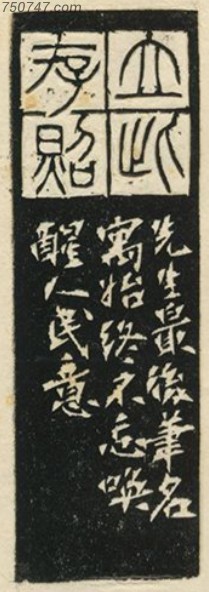 750747.com
立此
存照
先生最後筆名
寓始終不忘喚
醒人民意